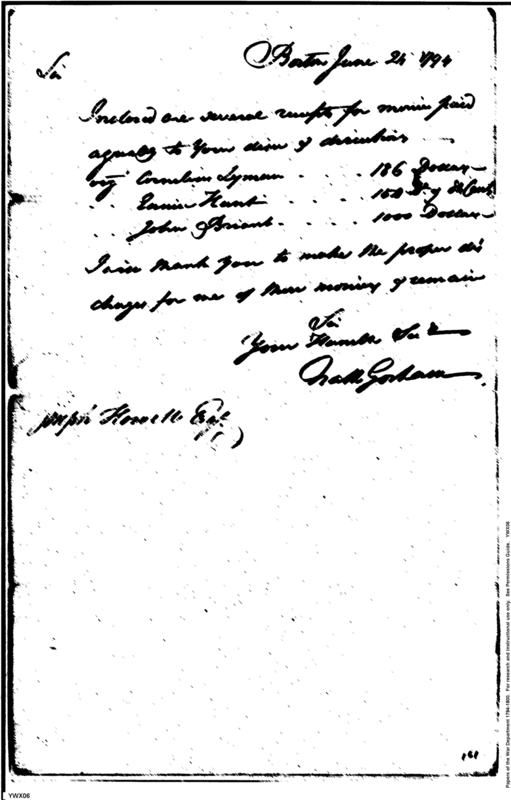 Boston June 24 1794
Sir
Inclosed are several receipts for monies paid
agreably to Your directions
viz Cornelius Lyman . . . 186 Dollars
. . Hunt . . . . 150 Ds. 
. . John Briant . . . . 1000 Dollars
I will thank You to make the proper dis
charges for me of these monies & remain
Sir
Your Humble Sert
Nath Gorham
Joseph Howell Esqr
161
YWX06
Papers of the War Department 1784-1800. For research and instructional use only. See Permissions Guide. YWX06